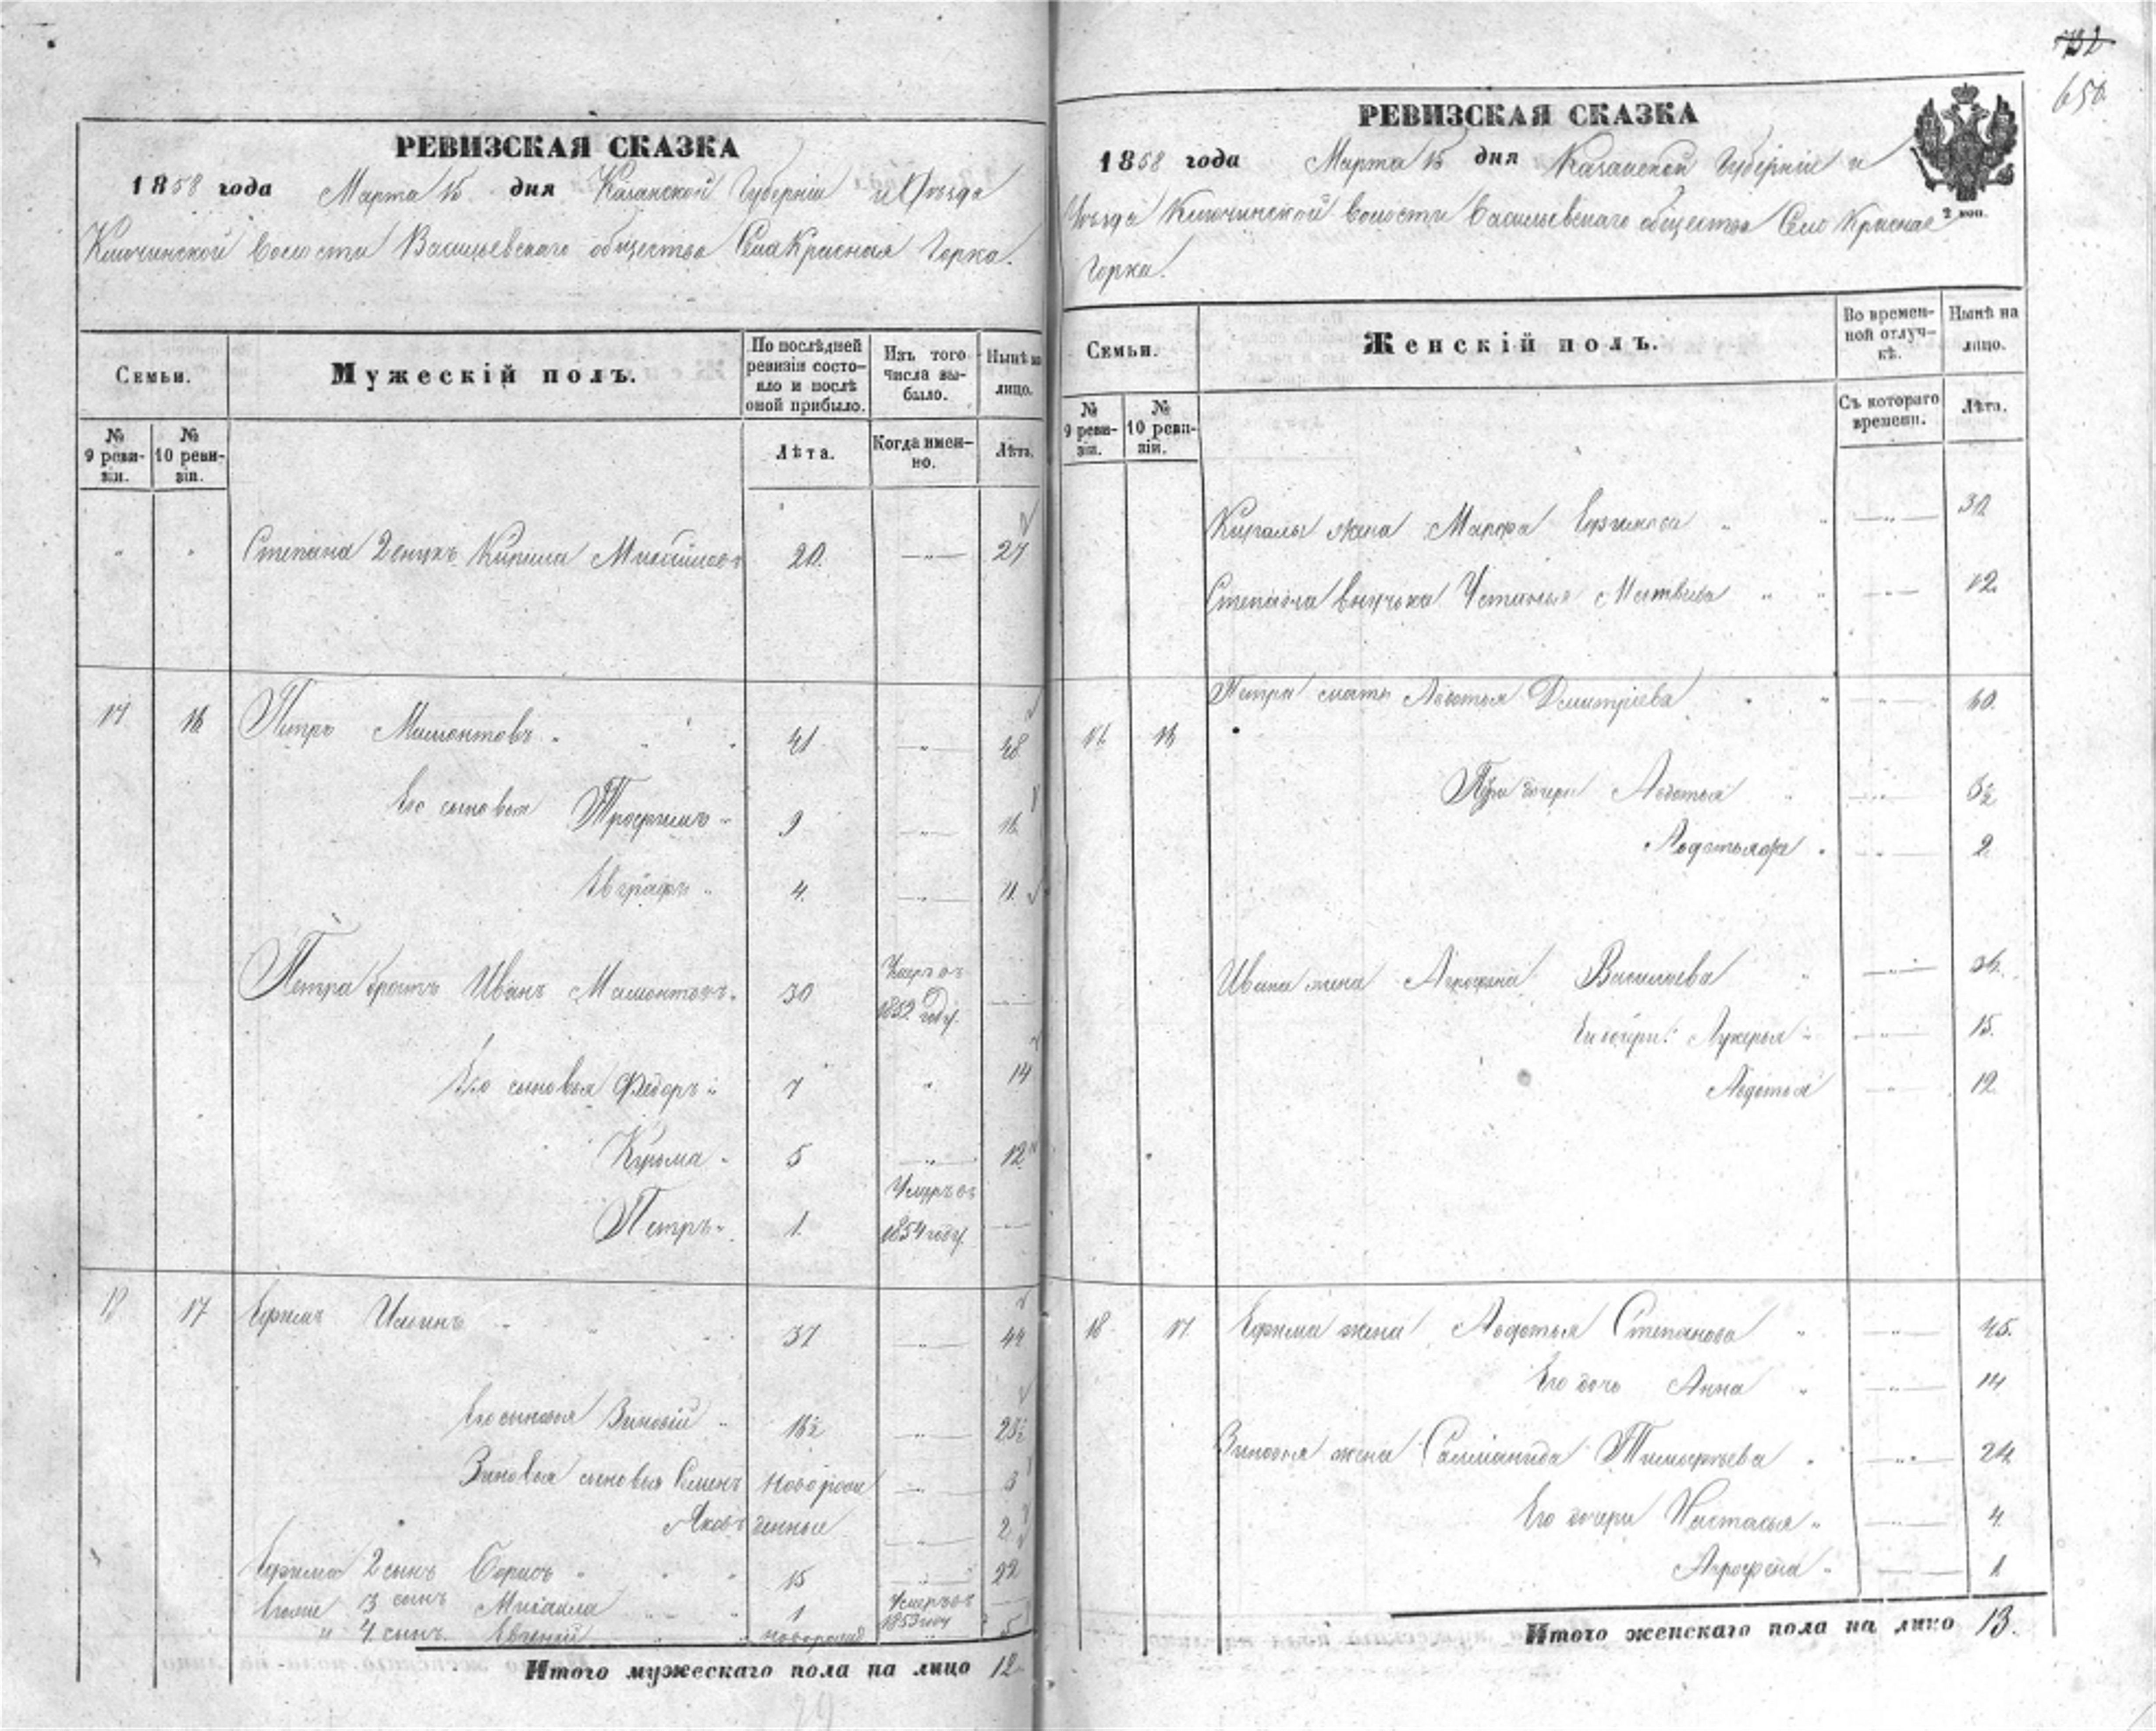 РЕВИЗСКАЯ СКАЗКА
1858 года Марта 15 дня Казанской Губерніи и Уѣзда
Ключинской волости Васильевскаго общества Села Красная Горка.
Семьи.
Мужескій полъ.
По послѣдней ревизіи состояло и послѣ оной прибыло.
Изъ того числа выбыло.
Нынѣ на лицо.
№ 9 ревизіи.
№ 10 ревизіи.
Лѣта.
Когда именно.
Лѣта.
" " Степана 2 внукъ Кирила 20. — " — 27
17 16 Петръ Мамонтовъ 41 — " — 48
Его сыновья Трофимъ 9 — " — 16
Евграфъ 4. — " — 11.
Петра братъ Иванъ Мамонтовъ 30 Умеръ въ 1852 году.
Его сыновья Федоръ 7 " 14
Кузьма 5 — " — 12
Петръ 1. Умеръ въ 1854 году.
18 17 Ефимъ 37 — " — 44
Его сыновья Зиновій 16½ — " — 23½
Зиновья сыновья Семенъ новорож 3
Яковъ денные 2
Ефима 2 сынъ Борисъ 15 — " — 22
3 сынъ Михаила 1 Умеръ въ 1853 году
" 4 сынъ Евгеній новорожд " 5
Итого мужескаго пола на лицо 12
732
650.
РЕВИЗСКАЯ СКАЗКА
1858 года Марта 15 дня Казанской Губерніи и
Уѣзда Ключинской волости Васильевскаго общества Село Красная
Горка.
2 коп.
Семьи.
Женскій полъ.
Во временной отлучкѣ.
Нынѣ на лицо.
№ 9 ревизіи.
№ 10 ревизіи.
Съ котораго времени.
Лѣта.
Кирилы жена Марфа Ефимова — " — 30
Степана внучька Устинья Матвеева — " — 12.
Петра мать Авдотья Дмитріева — " — 60.
16 16
дочери Авдотья — " —
Авдотья — " — 2.
Ивана жена Агрофена Васильева — " — 36.
Его дочери: Лукерья — " — 15.
Авдотья — " — 12.
18. 17. Ефима жена Авдотья Степанова — " — 45.
Его дочь Анна — " — 14
Зиновья жена Тимофѣева — " — 24
Его дочери Настасья — " — 4.
Агрофена — " — 1
Итого женскаго пола на лицо 13.